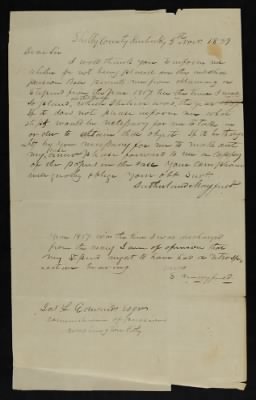 Shelby County Kentucky 5th Novr. 1839
Dear Sir
I would thank you to inform me
whether for not being placed on the
pension Roll previous to my drawing a
Stipend from the year 1817 has the time I was
so placed, which I believe was the year
If it does not please inform me what
steps would be necessary for me to take in
order to obtain that object. If it be thought
by you necessary for me to make out
my please forward to me a copy
of the papers in the case Your compliance
will greatly oblige your obt Servt
Sutherland Mayfield
Year 1817 was the time I was discharged
from the army I am of opinion that
my Stipend ought to have had a retrospective
bearing
S Mayfield
Jas L Edwards esqr
commissioner of Pensions
Washington City